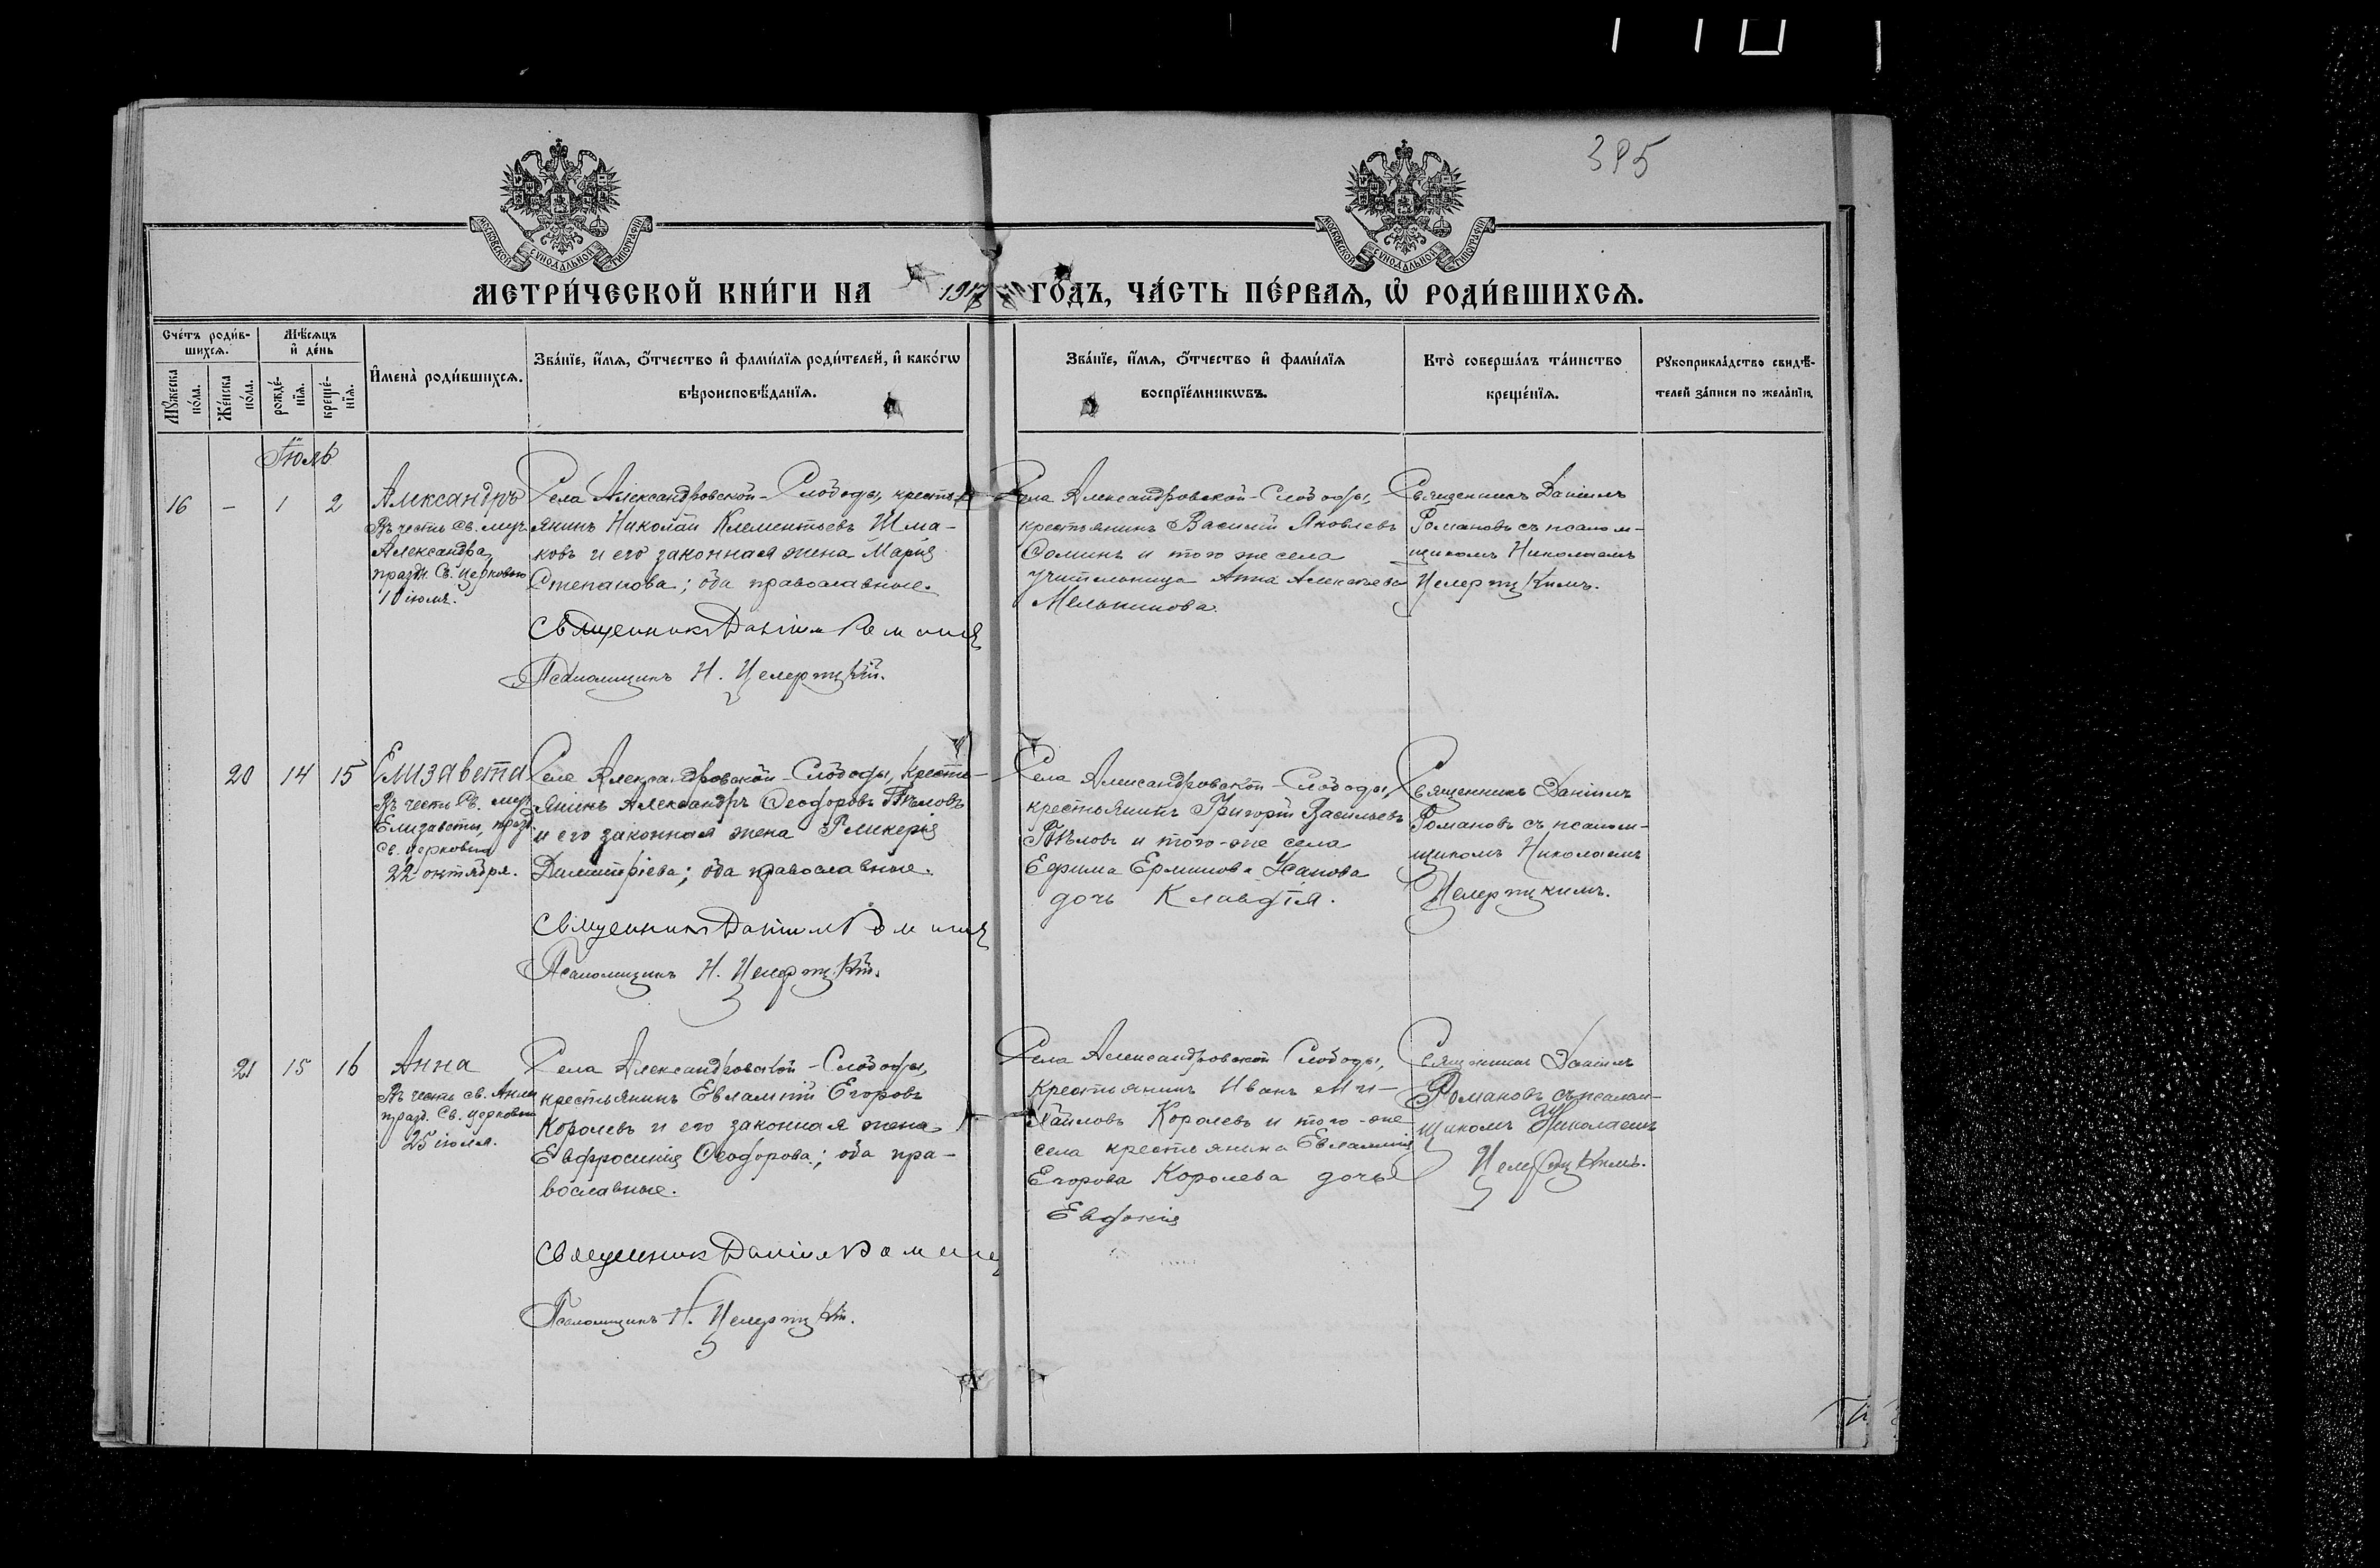 395
МОСКОВСКОЙ СѴНОДАЛЬНОЙ ТИПОГРАФІИ
МОСКОВСКОЙ СѴНОДАЛЬНОЙ ТИПОГРАФІИ
МЕТРИ́ЧЕСКОЙ КНИ́ГИ НА 1917 ГО́ДЪ, ЧА́СТЬ ПЕ́РВАѦ, Ѽ РОДИ́ВШИХСѦ.
Сче́тъ роди́в-
шихсѧ.
Мѣ́сѧцъ
и҆ де́нь
Мꙋ́жеска
по́ла.
Же́нска
по́ла.
рожде́-
нїѧ.
креще́-
нїѧ.
И҆мена̀ роди́вшихсѧ.
Зва́нїе, и҆́мѧ, ѻ҆́тчество и҆ фами́лїѧ роди́телей, и҆ како́гѡ
вѣроисповѣ́данїѧ.
Зва́нїе, и҆́мѧ, ѻ҆́тчество и҆ фами́лїѧ
воспрїе́мникѡвъ.
Кто̀ соверша́лъ та́инство
креще́нїѧ.
Рꙋкоприкла́дство свидѣ́-
телей за́писи по жела́нїю.
Іюль
16 - 1 2
Александръ
Въ честь св. муч.
Александра,
праздн. Св. церковью
10 іюля.
Села Александровской-Слободы, кресть-
янинъ Николай Клементьевъ Шма-
ковъ и его законная жена Марія
Степанова; оба православные.
Священникъ Даніилъ Романовъ
Псаломщикъ Н. Целертцкій.
Села Александровской-Слободы,
крестьянинъ Василій Яковлевъ
Ѳоминъ и того же села
учительница Анна Алексѣева
Мельникова.
Священникъ Даніилъ
Романовъ съ псалом-
щикомъ Николаемъ
Целертцкимъ.
20 14 15
Елизавета
Въ честь Св. муч.
Елизаветы, празд.
Св. церковью
22 октября.
Села Александровской-Слободы, кресть-
янинъ Александръ Ѳеодоровъ Бѣловъ
и его законная жена Гликерія
Димитріева; оба православные.
Священникъ Даніилъ Романовъ
Псаломщикъ Н. Целертцкій.
Села Александровской-Слободы,
крестьянинъ Григорій Васильевъ
Бѣловъ и того-же села
Ефима Ермилова Усанова
дочь Клавдія.
Священникъ Даніилъ
Романовъ съ псалом-
щикомъ Николаемъ
Целертцкимъ.
21 15 16
Анна
Въ честь св. Анны
празд. Св. церковью
25 іюля.
Села Александровской-Слободы,
крестьянинъ Евлампій Егоровъ
Королевъ и его законная жена
Евфросинія Ѳеодорова; оба пра-
вославные.
Священникъ Даніилъ Романовъ
Псаломщикъ Н. Целертцкій.
Села Александровской Слободы,
крестьянинъ Иванъ Ми-
хайловъ Королевъ и того-же
села крестьянина Евлампія
Егорова Королева дочь
Евдокія
Священникъ Даніилъ
Романовъ съ псалом-
щикомъ Николаемъ
Целертцкимъ.